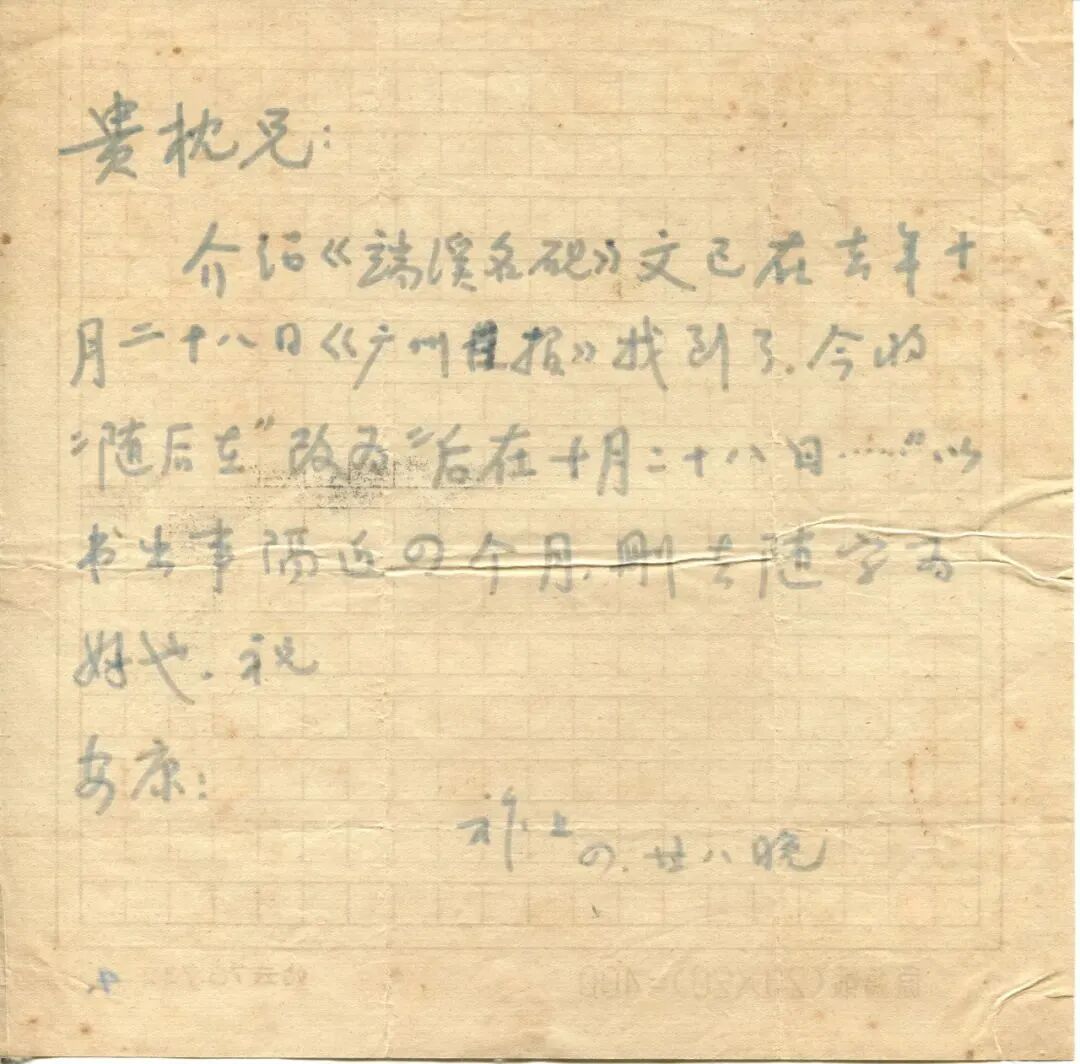 贵枕兄:
介绍《端溪名砚》文已在去年十
月二十八日《广州日报》找到了.今将
"随后在"改为"后在十月二十八日……".以
书出事隔近四个月,删去随字为
好也.祝
安康:
祁上
四.廿八晚
(20×20)=400